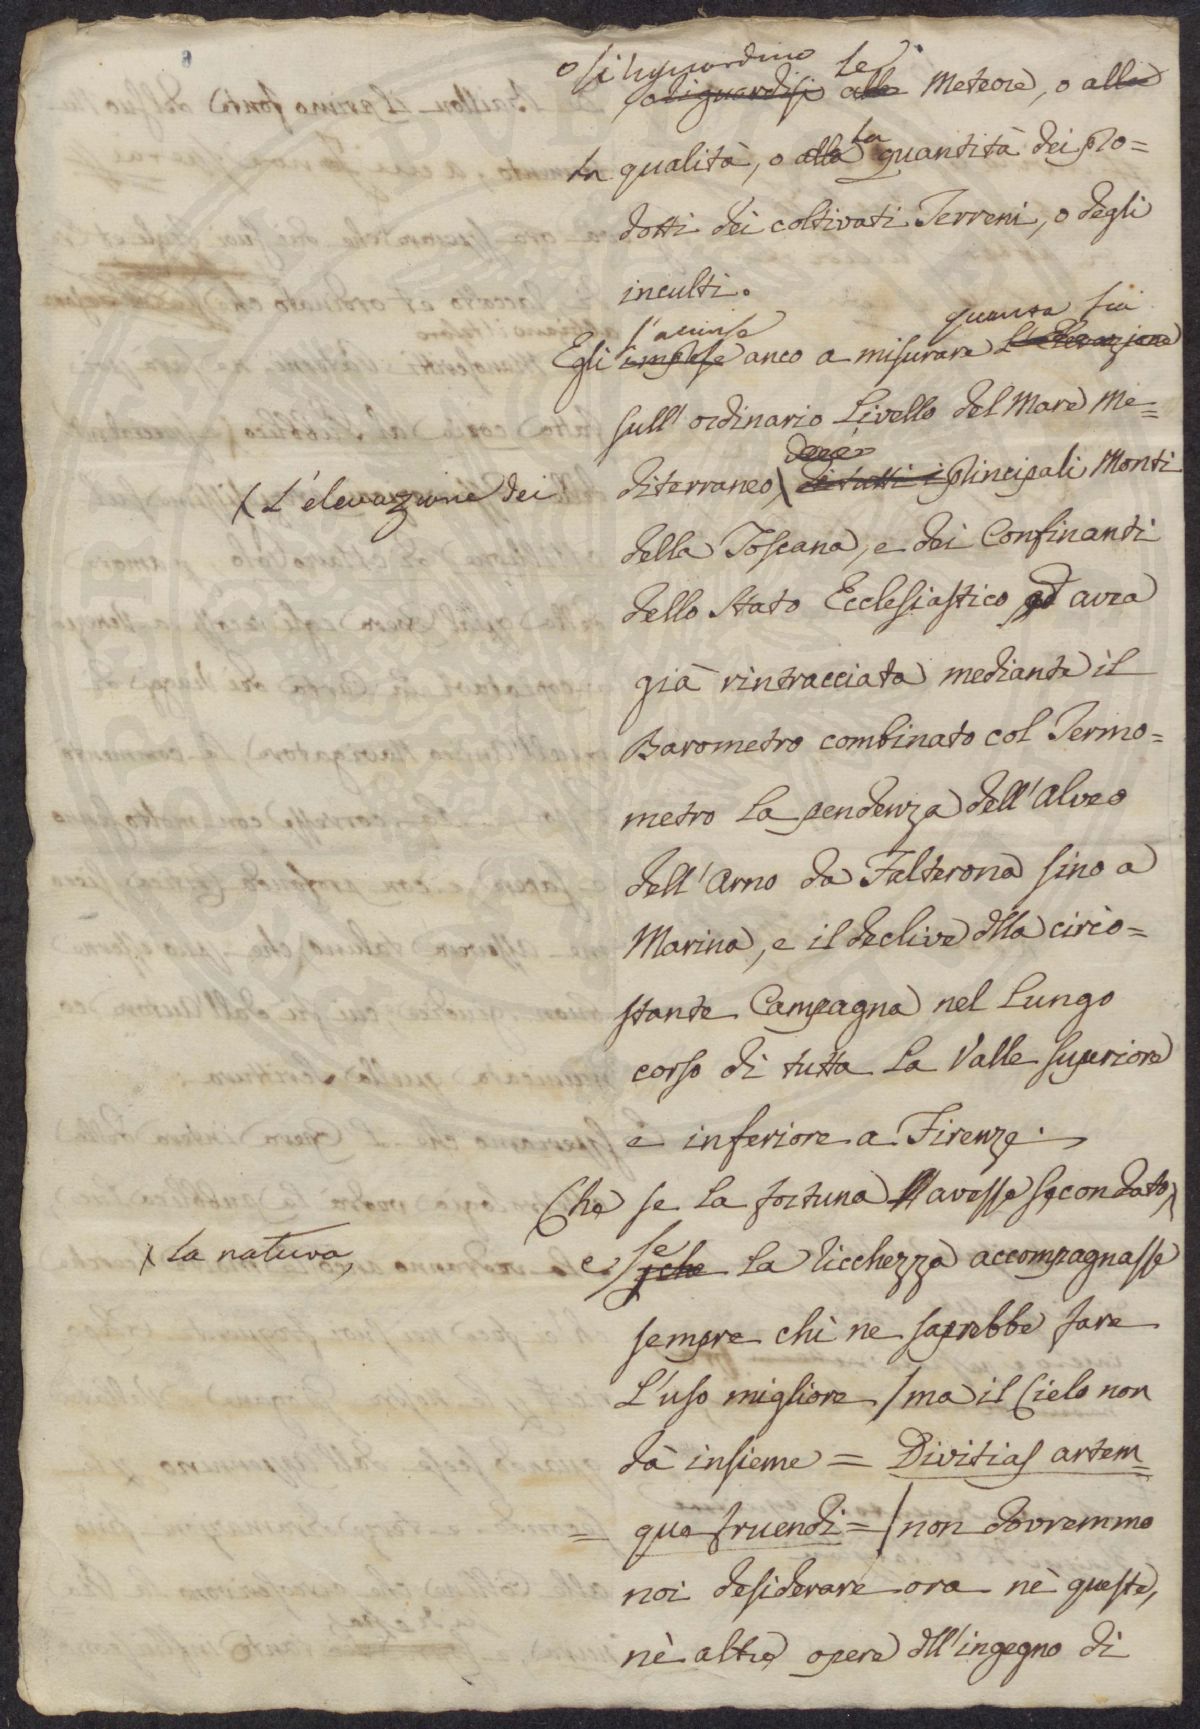 o si riguardino le
o riguardisi alle Meteore, o alla
la qualità, o alla la quantità dei pro=
dotti dei coltivati Terreni, o degli
inculti.
s'accinse quanta sia
Egli imprese anco a misurare L'Elevazione
sull'ordinario Livello del Mare Me=
(L'elevazione dei
diterraneo, di tutti i principali Monti
della Toscana, e dei Confinanti
dello Stato Ecclesiastico ed avea
già rintracciata mediante il
Barometro combinato col Termo=
metro la pendenza dell'Alveo
dell'Arno da Falterona sino a
Marina, e il declive dlla circo=
stante Campagna nel Lungo
corso di tutta la Valle superiore
e inferiore a Firenze.
Che se la fortuna avesse secondato
( la natura,
e se che la ricchezza accompagnasse
sempre chi ne saprebbe fare
L'uso migliore / ma il Cielo non
dà insieme = Divitias artem=
= que fruendi = / non dovremmo
noi desiderare ora nè queste,
nè altre opere dll'ingegno di